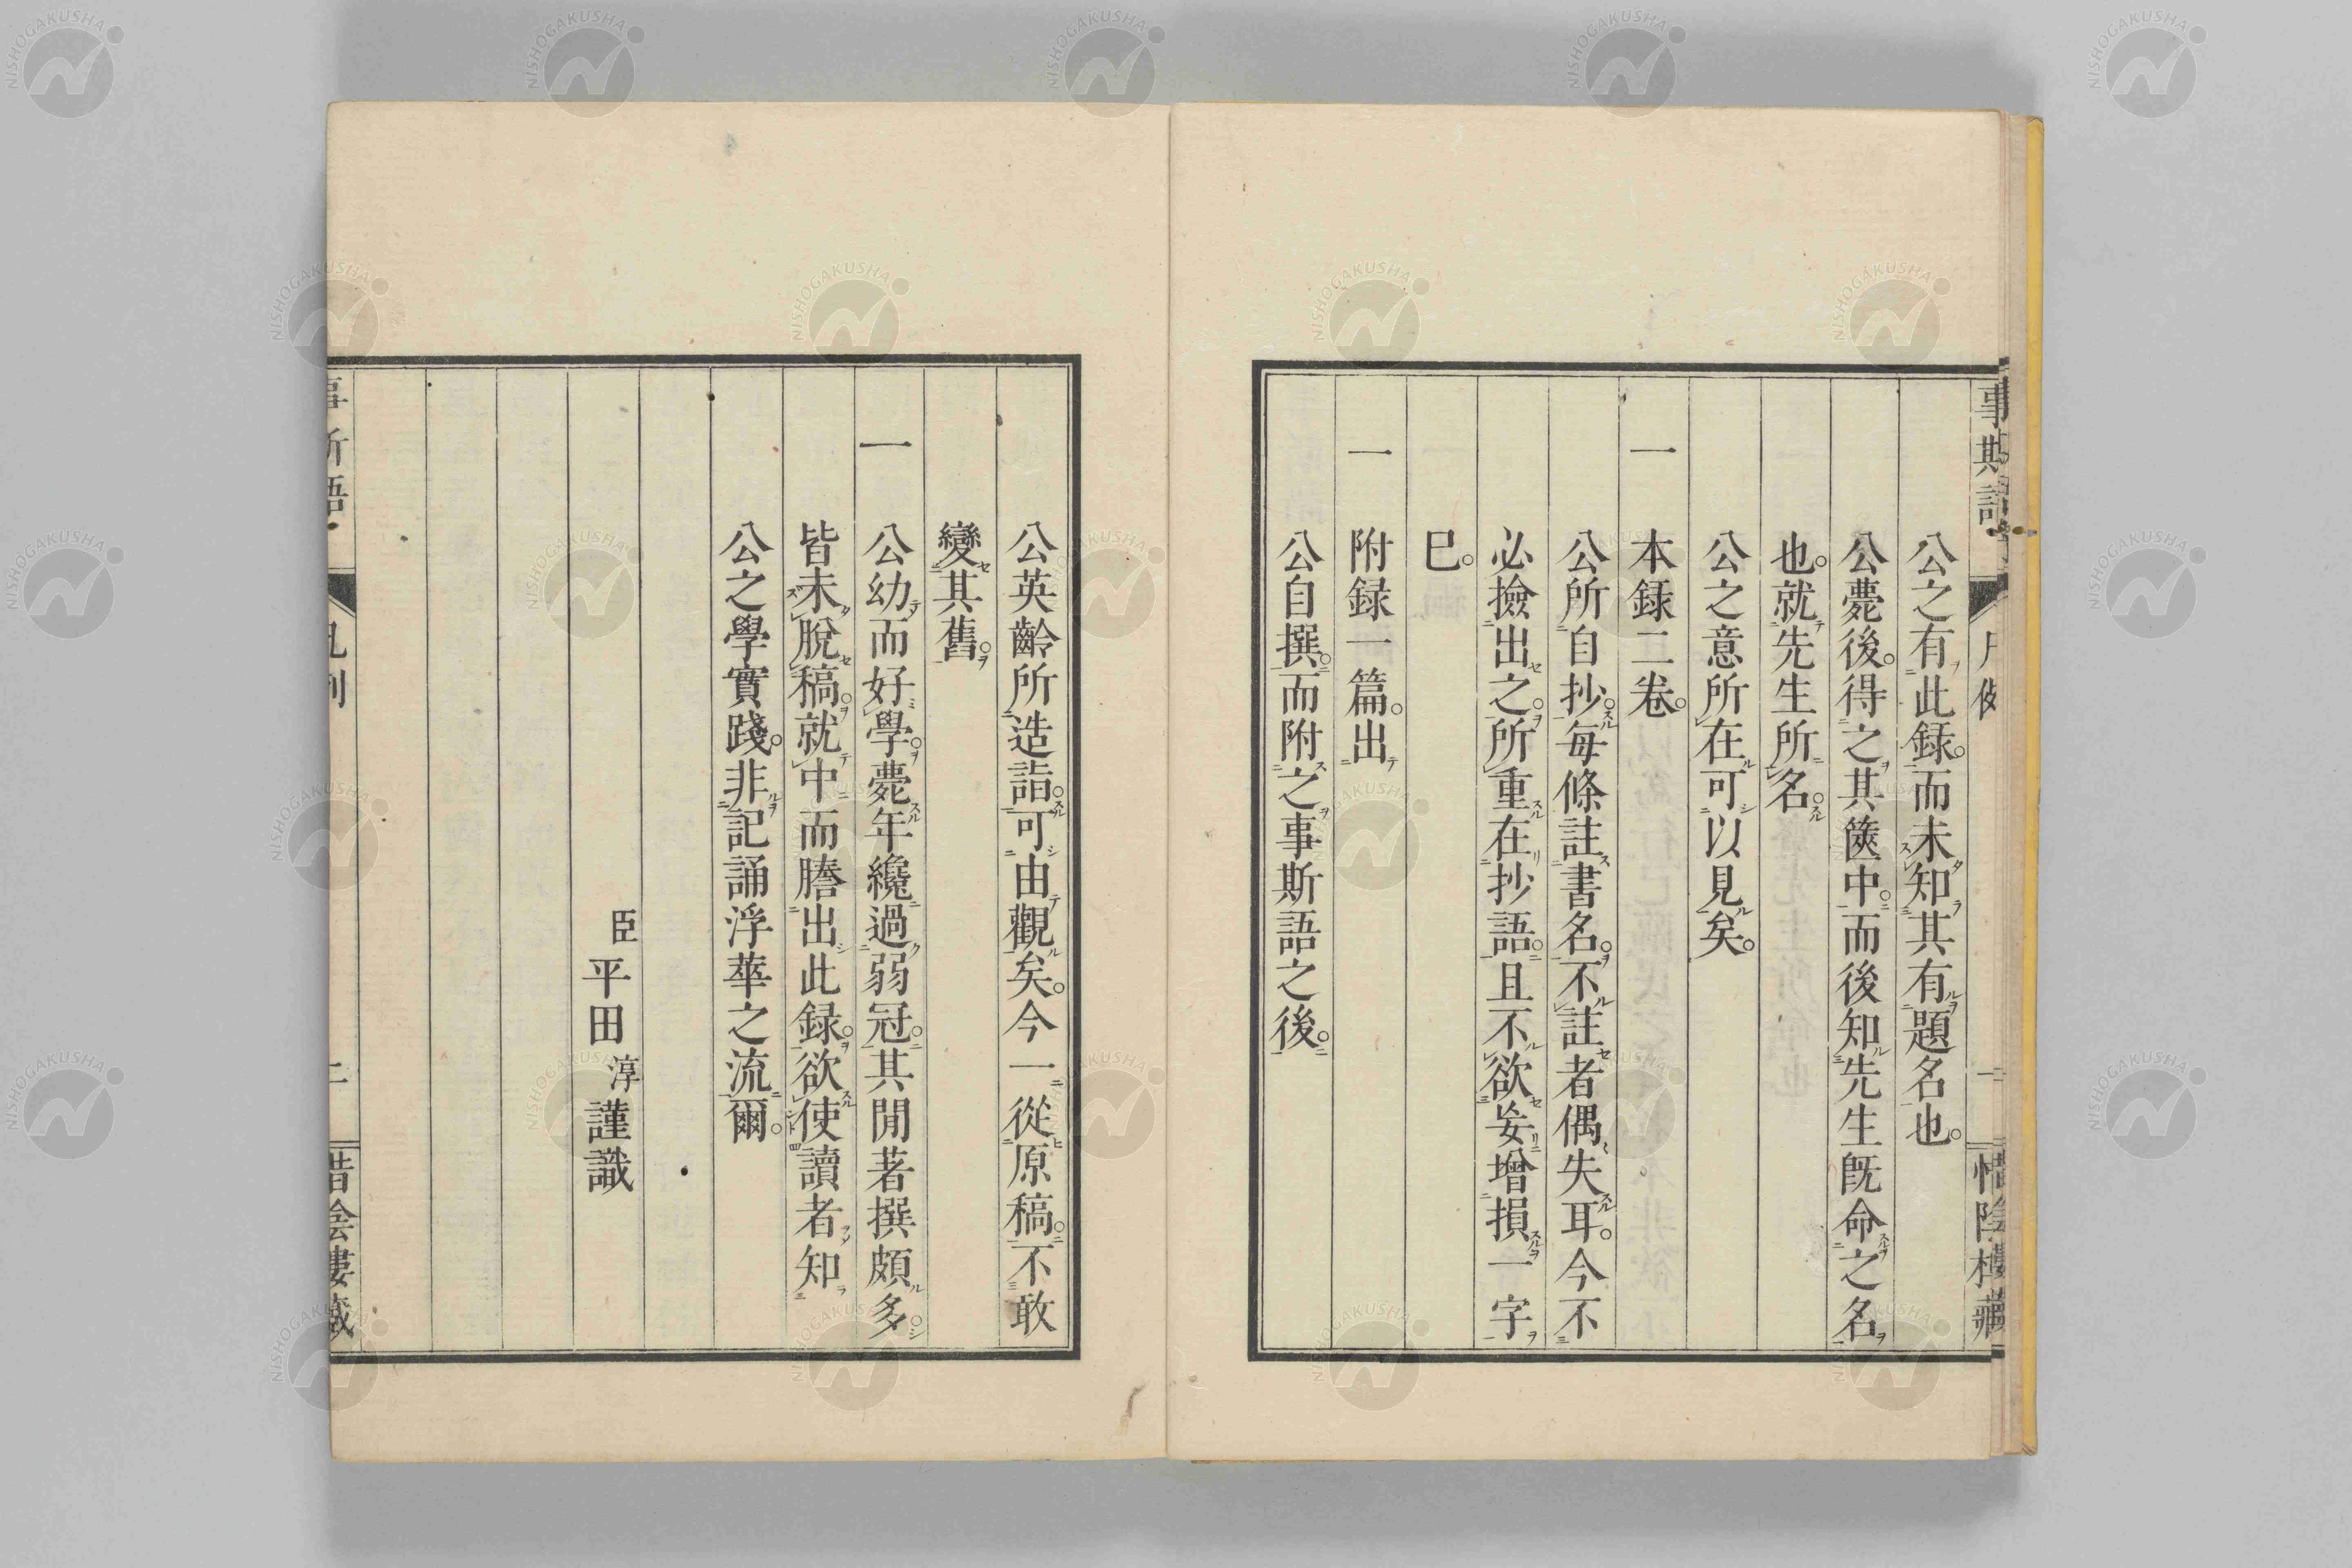 公之有此録。而未知其有題名也。
公薨後。得之其篋中。而後知先生既命之名
也。就先生所名。
公之意所在可以見矣。
一 本録二卷。
公所自抄。每條註書名。不註者偶失耳。今不
必撿出之。所重在抄語。且不欲妄增損一字
已。
一 附録一篇。出
公自撰。而附之事斯語之後。
公英齡所造詣。可由觀矣。今一從原稿。不敢
變其舊。
一 公幼而好學。薨年纔過弱冠。其閒著撰頗多。
皆未脫稿。就中而謄出此録。欲使讀者知
公之學實踐。非記誦浮華之流爾。
臣平田淳謹識
事斯語
凡例
二
惜陰樓藏
NISHOGAKUSHA